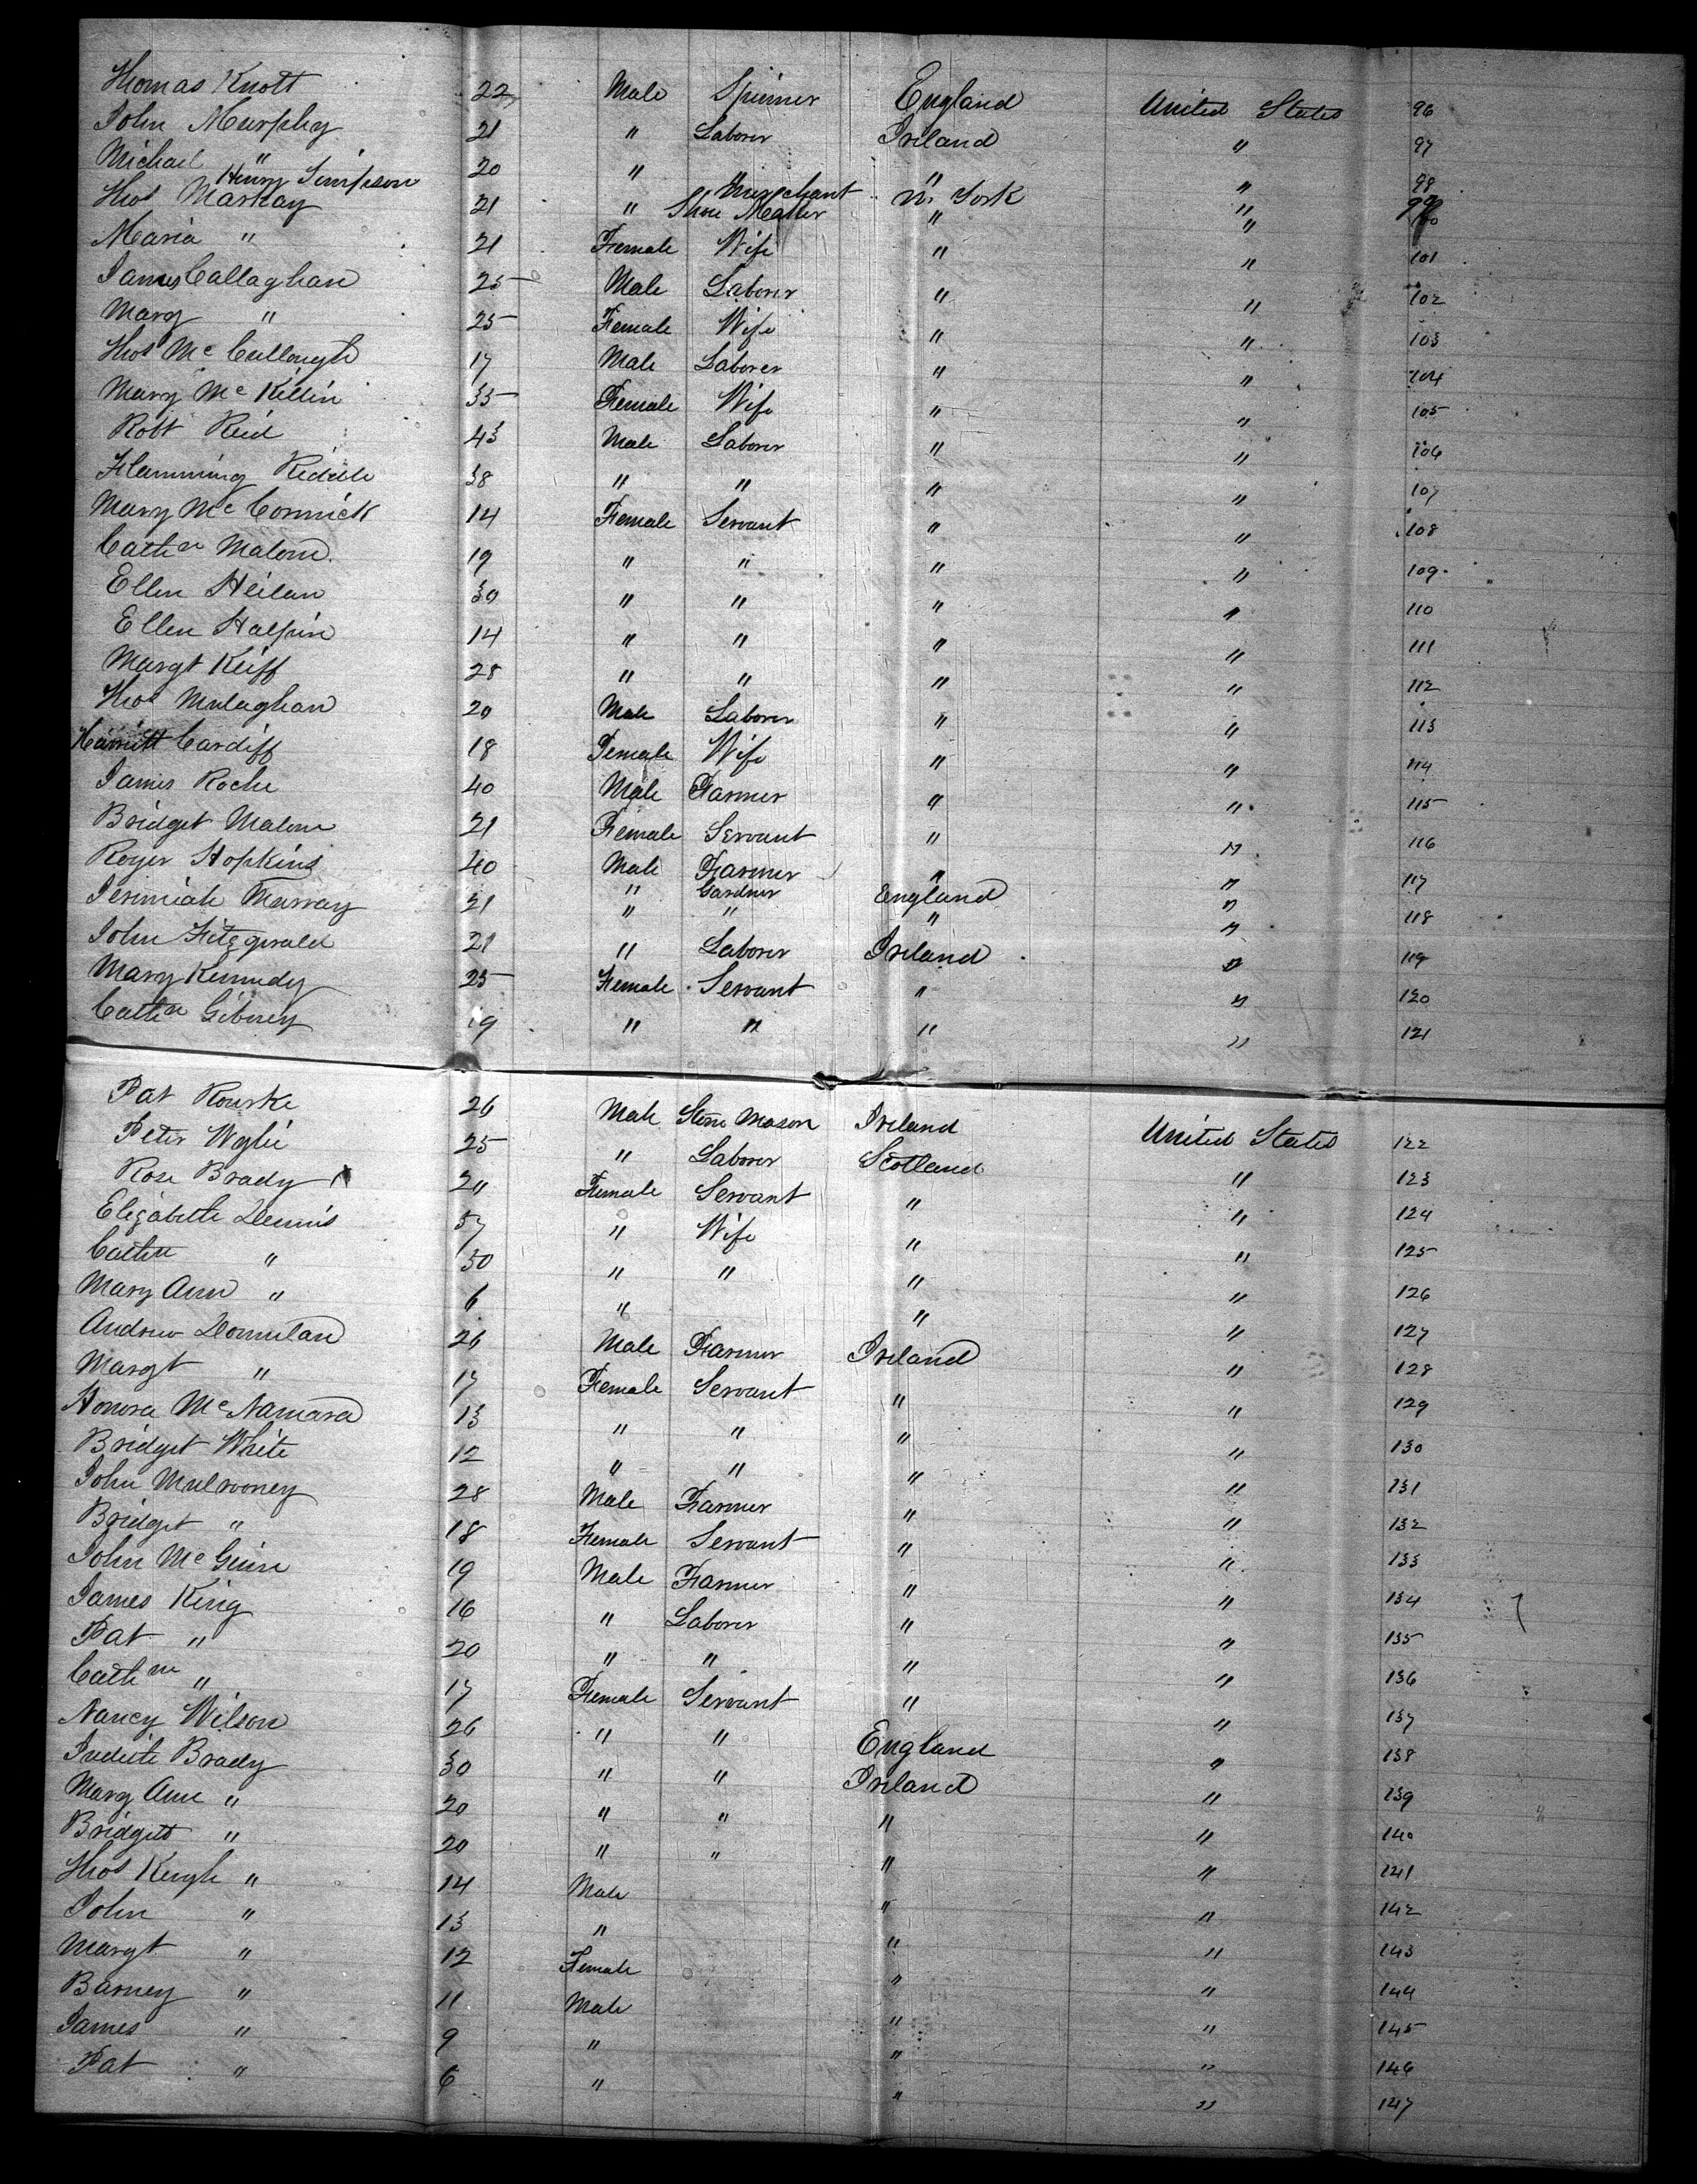 Thomas Knott 22 Male Spinner England United States 96
John Murphy 21 " Laborer Ireland " 97
Michael " 20 " " " " 98
Henry Simpson Merchant N. York " 99
Thos Markay 21 " Shoe Maker " " 100
Maria " 21 Female Wife " " 101
James Callaghan 25 Male Laborer " " 102
Mary " 25 Female Wife " " 103
Thos McCullough 17 Male Laborer " " 104
Mary McKillin 35 Female Wife " " 105
Robt Reid 43 Male Laborer " " 106
Flamming Riddle 38 " " " " 107
Mary McCormick 14 Female Servant " " 108
Cathn Malone 19 " " " " 109
Ellen Heilan 30 " " " " 110
Ellen Halpin 14 " " " " 111
Margt Keiff 28 " " " " 112
Thos Mulaghan 20 Male Laborer " " 113
Harriett Cardiff 18 Female Wife " " 114
James Roche 40 Male Farmer " " 115
Bridget Malone 21 Female Servant " " 116
Roger Hopkins 40 Male Farmer " " 117
" Gardner England "
Jerimiah Murray 21 " " " " 118
John Fitzgerald 21 " Laborer Ireland " 119
Mary Kennedy 25 Female Servant " " 120
Cathn Gibney 19 " " " " 121
Pat Rourke 26 Male Stone Mason Ireland United States 122
Peter Wylie 25 " Laborer Scotland " 123
Rose Brady 20 Female Servant " " 124
Elizabeth Dennis 57 " Wife " " 125
Cathn " 30 " " " " 126
Mary Ann " 6 " " " 127
Andrew Donnelan 26 Male Farmer Ireland " 128
Margt " 17 Female Servant " " 129
Honora McNamara 13 " " " " 130
Bridget White 12 " " " " 131
John Mulrooney 28 Male Farmer " " 132
Bridget " 18 Female Servant " " 133
John McGuire 19 Male Farmer " " 134
James King 16 " Laborer " " 135
Pat " 20 " " " " 136
Cathne " 17 Female Servant " " 137
Nancy Wilson 26 " " England " 138
Judith Brady 30 " " Ireland " 139
Mary Ann " 20 " " " " 140
Bridgett " 20 " " " " 141
Thos Keugh " 14 Male " " 142
John " 13 " " " 143
Margt " 12 Female " " 144
Barney " 11 Male " " 145
James " 9 " " " 146
Pat " 6 " " " 147